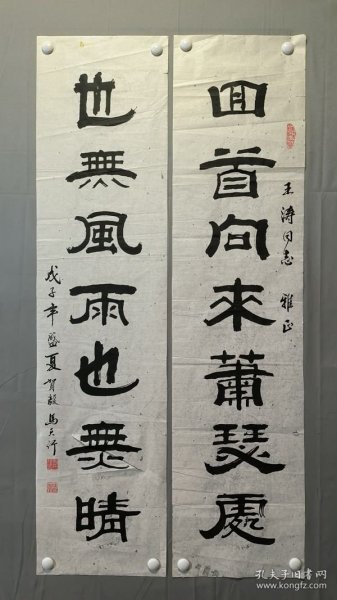 回首向來蕭瑟處
王涛同志 雅正
也無風雨也無晴
戊子年盛夏
孔夫子旧书网
www.kongfz.com